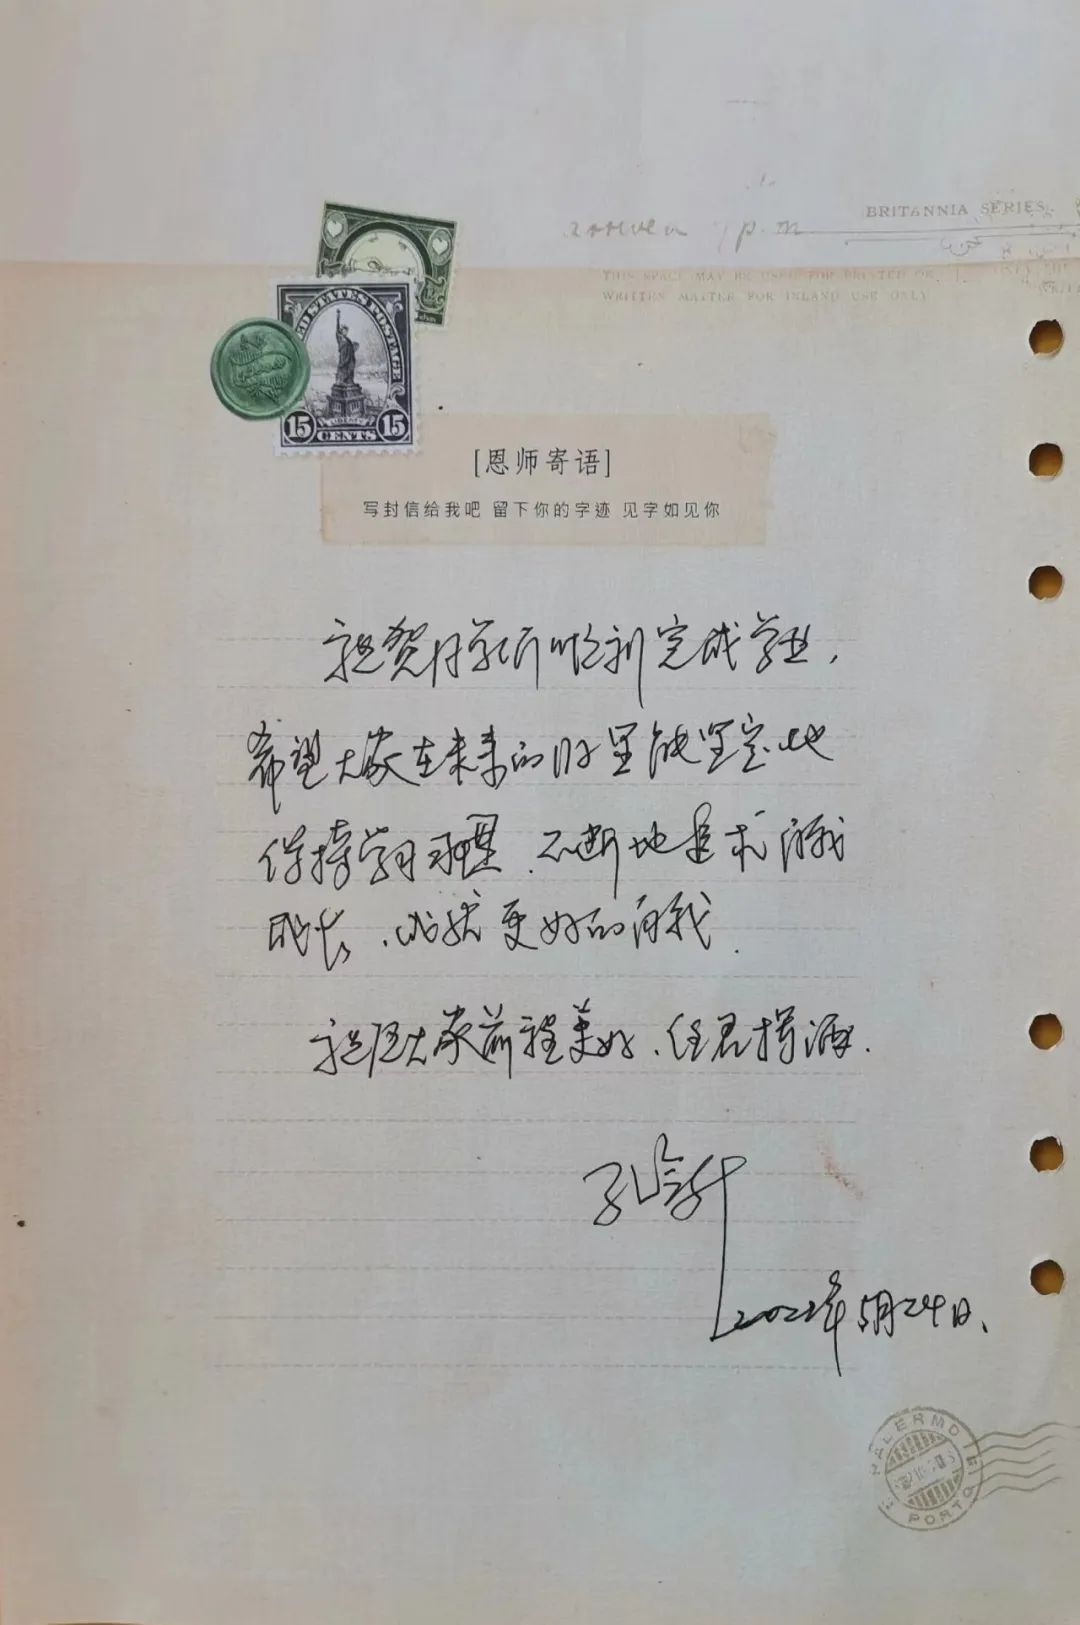 BRITANNIA SERIES
p.m
THIS SPACE MAY BE USED FOR PRINTED OR
WRITTEN MATTER FOR INLAND USE ONLY
STATES POSTAGE
LIBERTY
15 CENTS 15
[恩师寄语]
写封信给我吧 留下你的字迹 见字如见你
祝贺同学们顺利完成学业，
希望大家在未来的日子里能坚定地
保持学习，不断地追求自我
成长、成就更好的自我.
祝愿大家前程美好、任君挥洒.
孔
2022年5月24日、
PALERMO
PORTO